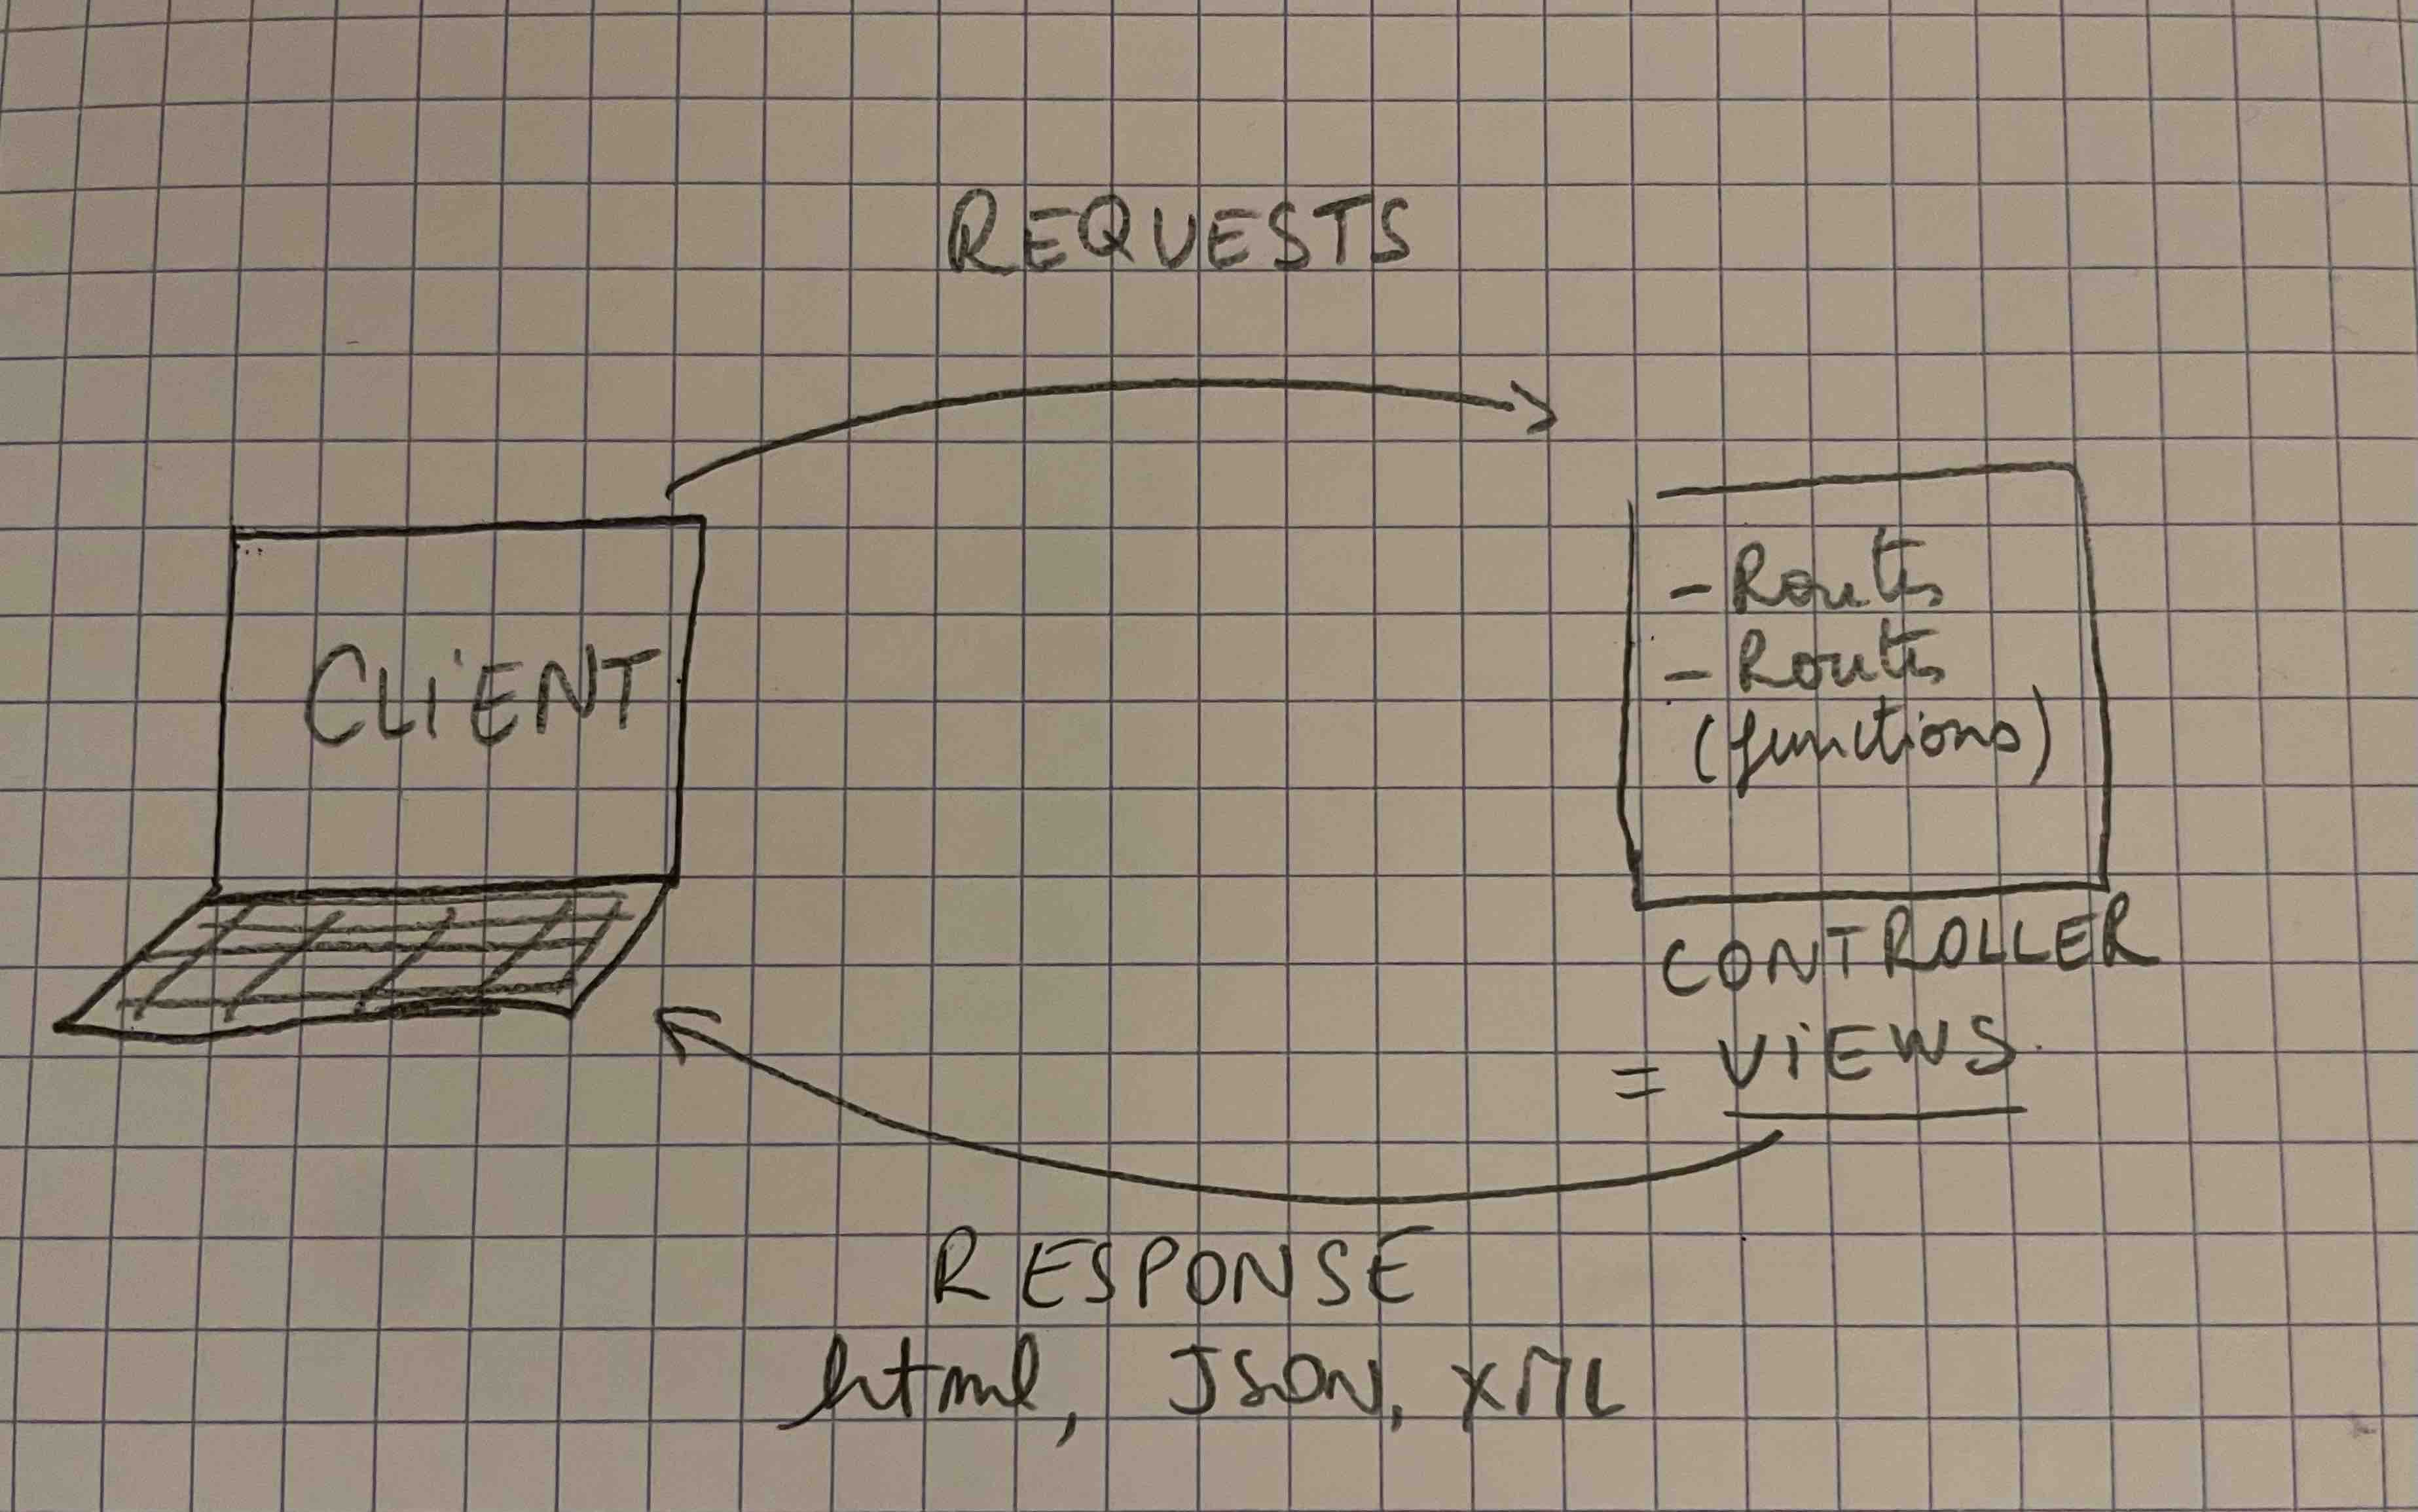 REQUESTS
CLiENT
- Routes
- Routes
(functions)
CONTROLLER
= ViEWS
RESPONSE
html, JSON, XML